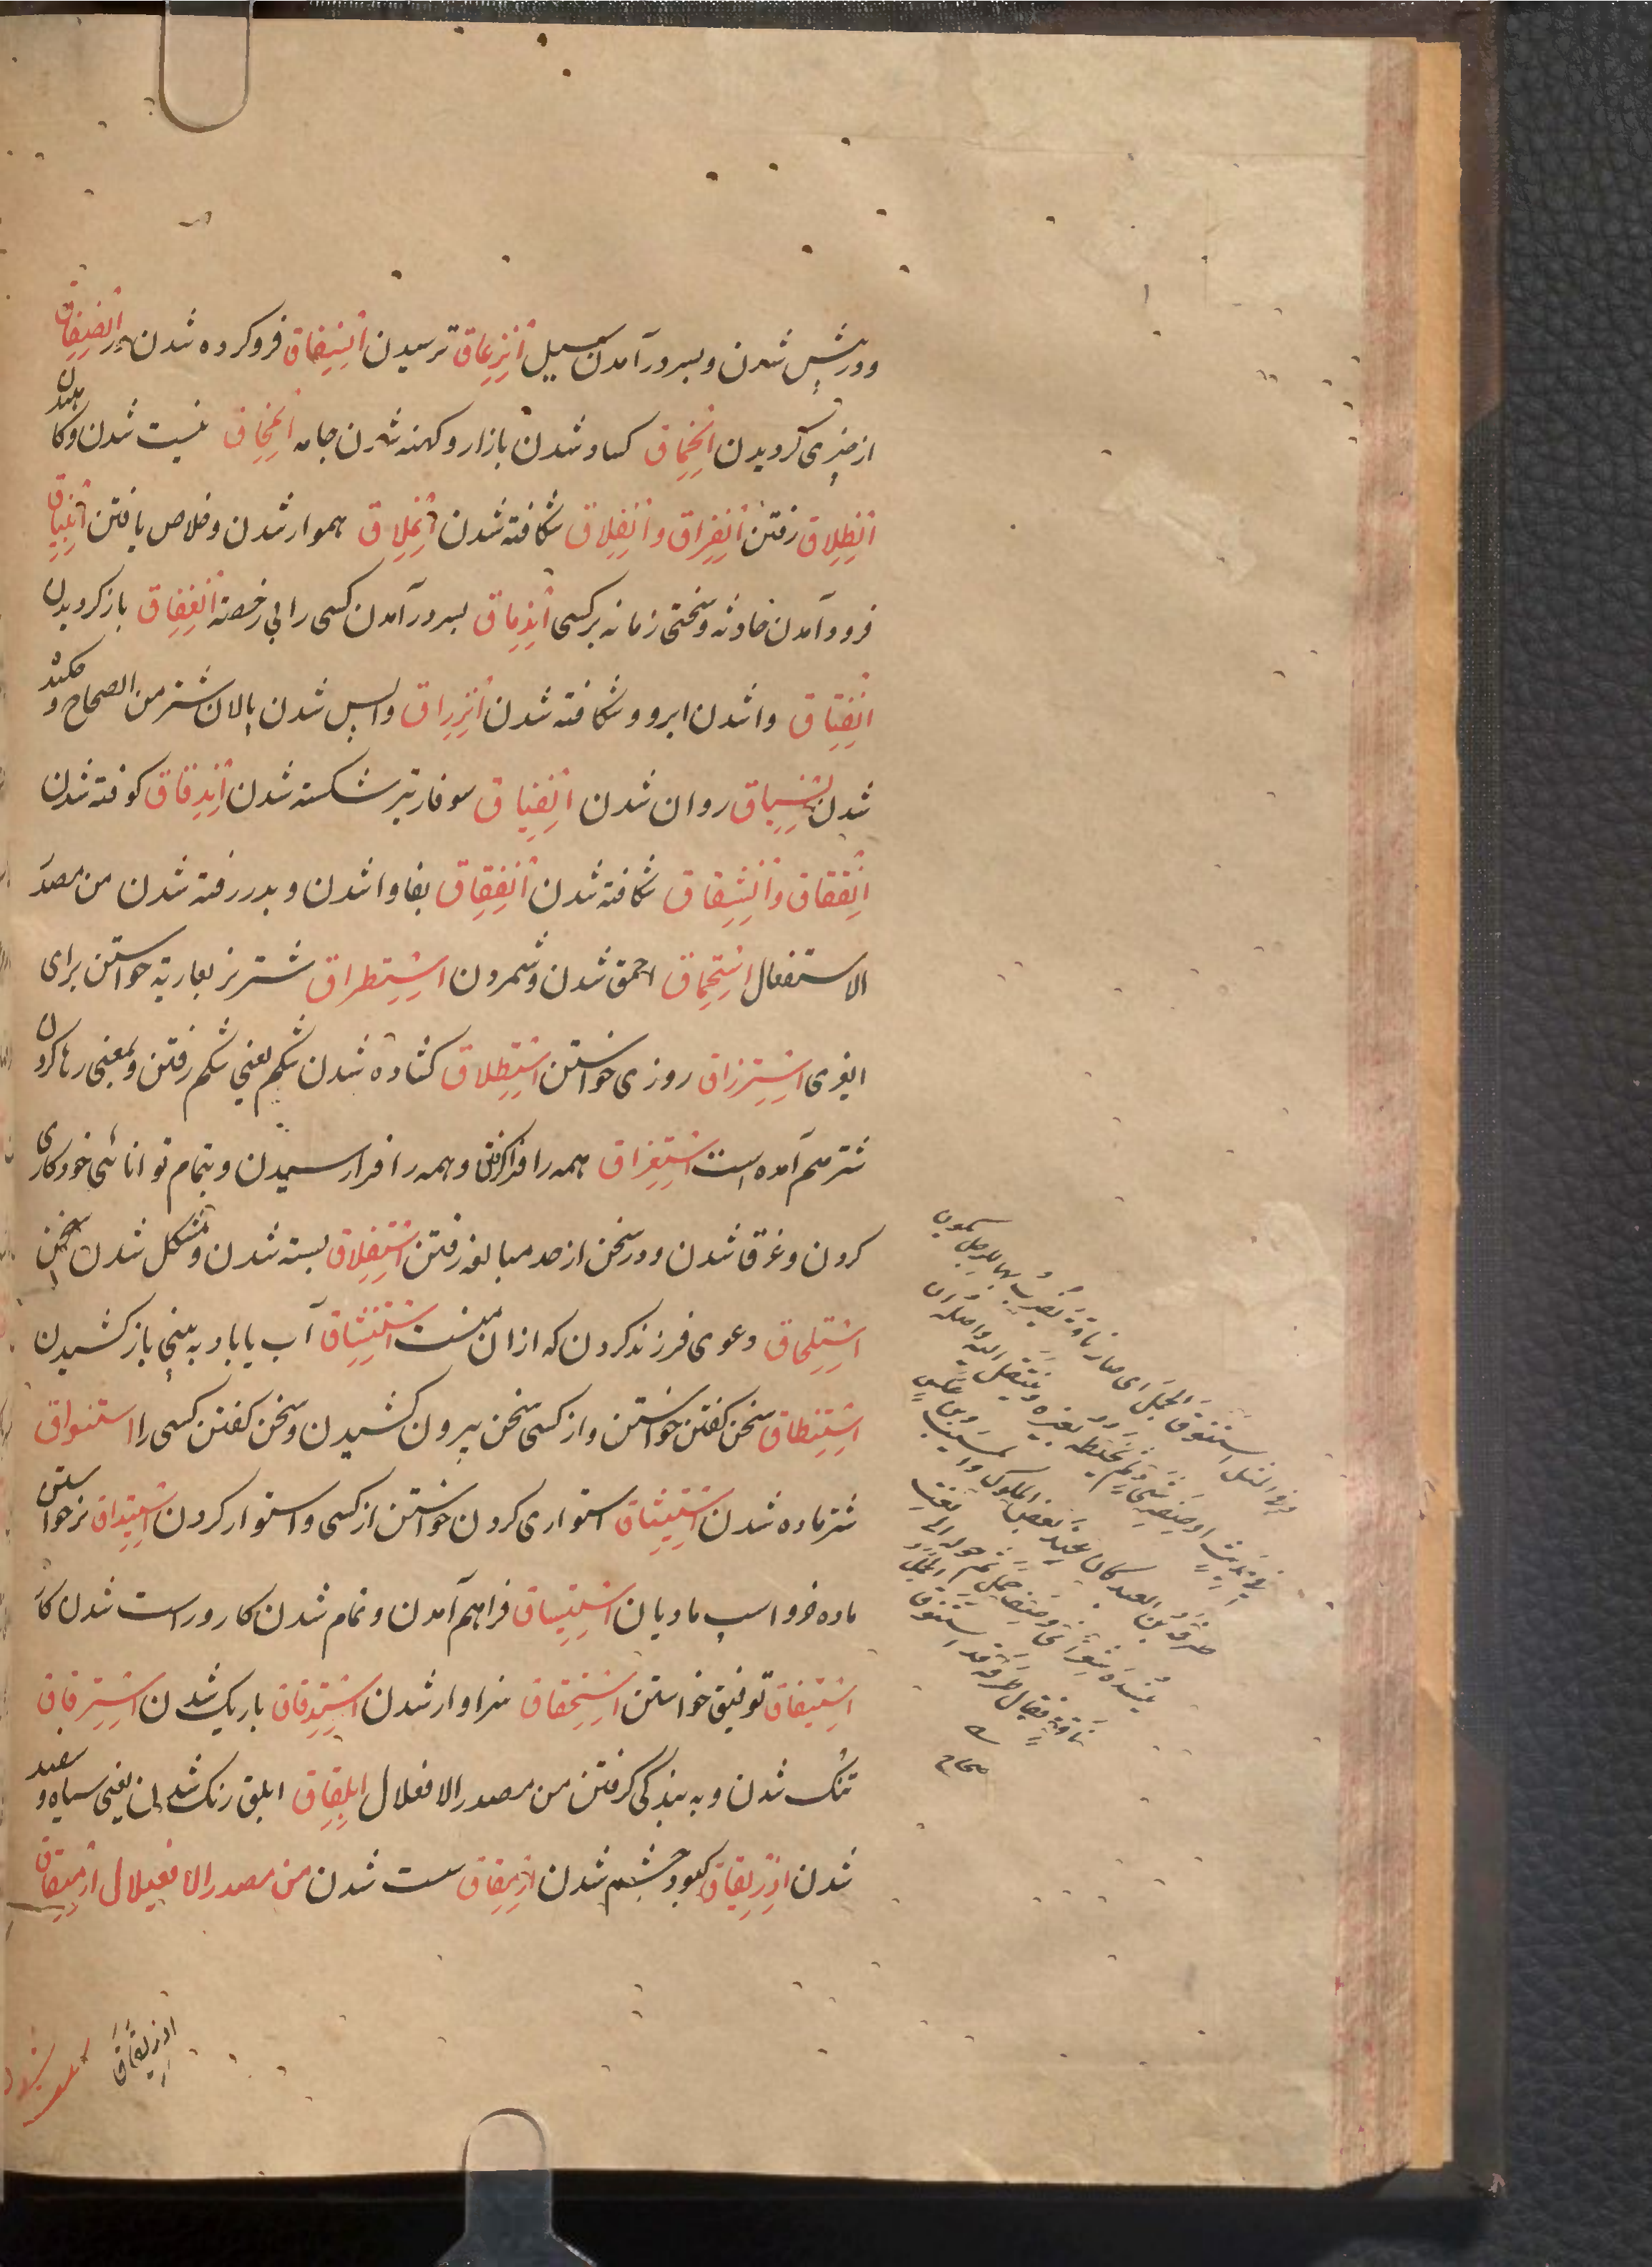 ودرپیش شدن وبسر درآمدن سیل اِنْزِعاق ترسیدن اِنْسِفاق فروکرده شدن در اِنْصِفاق
از چیزی گردیدن اِنْحِماق کساد شدن بازار وکهنه شدن جامه اِنْمِحاق نیست شدن وکاهیدن
اِنْطِلاق رفتن اِنْفِراق واِنْفِلاق شکافته شدن اِنْمِلاق هموار شدن وخلاص یافتن اِنْبِیاق
فرود آمدن حادثه وسختی زمانه برکسی اِنْدِماق بسر درآمدن کسی را بی رخصة اِنْغِفاق باز گردیدن
اِنْفِتاق وا شدن ابر و وشکافته شدن اِنْزِراق واپس شدن پالان شتر من الصحاح و
شدن اِنْسِیاق روان شدن اِنْفِیاق سوفار تیر شکسته شدن اِنْدِقاق کوفته شدن
اِنْعِقاق واِنْشِقاق شکافته شدن اِنْفِقاق وا شدن وبدر رفته شدن من مصدر
الاستفعال اِسْتِحْماق احمق شدن وشمردن اِسْتِطْراق شتر نر بعاریة خواستن برای
اِسْتِرْزاق روزی خواستن اِسْتِطْلاق کشاده شدن شکم یعنی شکم رفتن وبمعنی رها کردن
شتر هم آمده است اِسْتِغْراق همه را فرا گرفتن وهمه را فرا رسیدن وبتمام توانائی خود کاری
کردن وغرقا شدن ودر سخن از حد مبالغه رفتن اِسْتِغْلاق بسته شدن ومشکل شدن سخن
اِسْتِلْحاق دعوی فرزند کردن که از ان منست اِسْتِنْشاق آب یا باد به بینی باز کشیدن
اِسْتِنْطاق سخن گفتن خواستن واز کسی سخن بیرون کشیدن وسخن گفتن کسی را استنواق
شتر ماده شدن اِسْتِیثاق استواری کردن خواستن از کسی واستوار کردن اِسْتِیداق نر خواستن
ماده خر واسپ مادیان اِسْتِیساق فراهم آمدن وتمام شدن کار وراست شدن کار
اِسْتِیفاق توفیق خواستن اِسْتِحْقاق سزاوار شدن اِسْتِدْقاق باریک شدن اِسْتِرْقاق
تنک شدن وبه بندگی گرفتن من مصدر الافعلال اِبْلِقاق ابلق رنگ شدن یعنی سیاه وسفید
شدن اِزْرِیقاق کبود چشم شدن اِرْمِقاق سست شدن من مصدر الافعیلال اِرْمِیقاق
وفی المثل استنوق الجمل ای صار ناقة یضرب بها للرجل یکون
فی حدیث او صفة شیء ثم یخلطه بغیره وینتقل الیه واصله ان
طرفة بن العبد کان عند بعض الملوک والمسیب بن علس
ینشده شعرا فی وصف جمل ثم حوله الی نعت
ناقة فقال طرفة قد استنوق الجمل
صحاح
ازریقاق